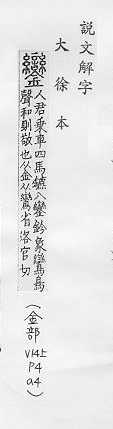 說文解字
大徐本
鑾人君乘車四馬鑣八鑾鈴象鸞鳥
聲和則敬也从金从鸞省洛官切
(金部
V14上
P4
a4)